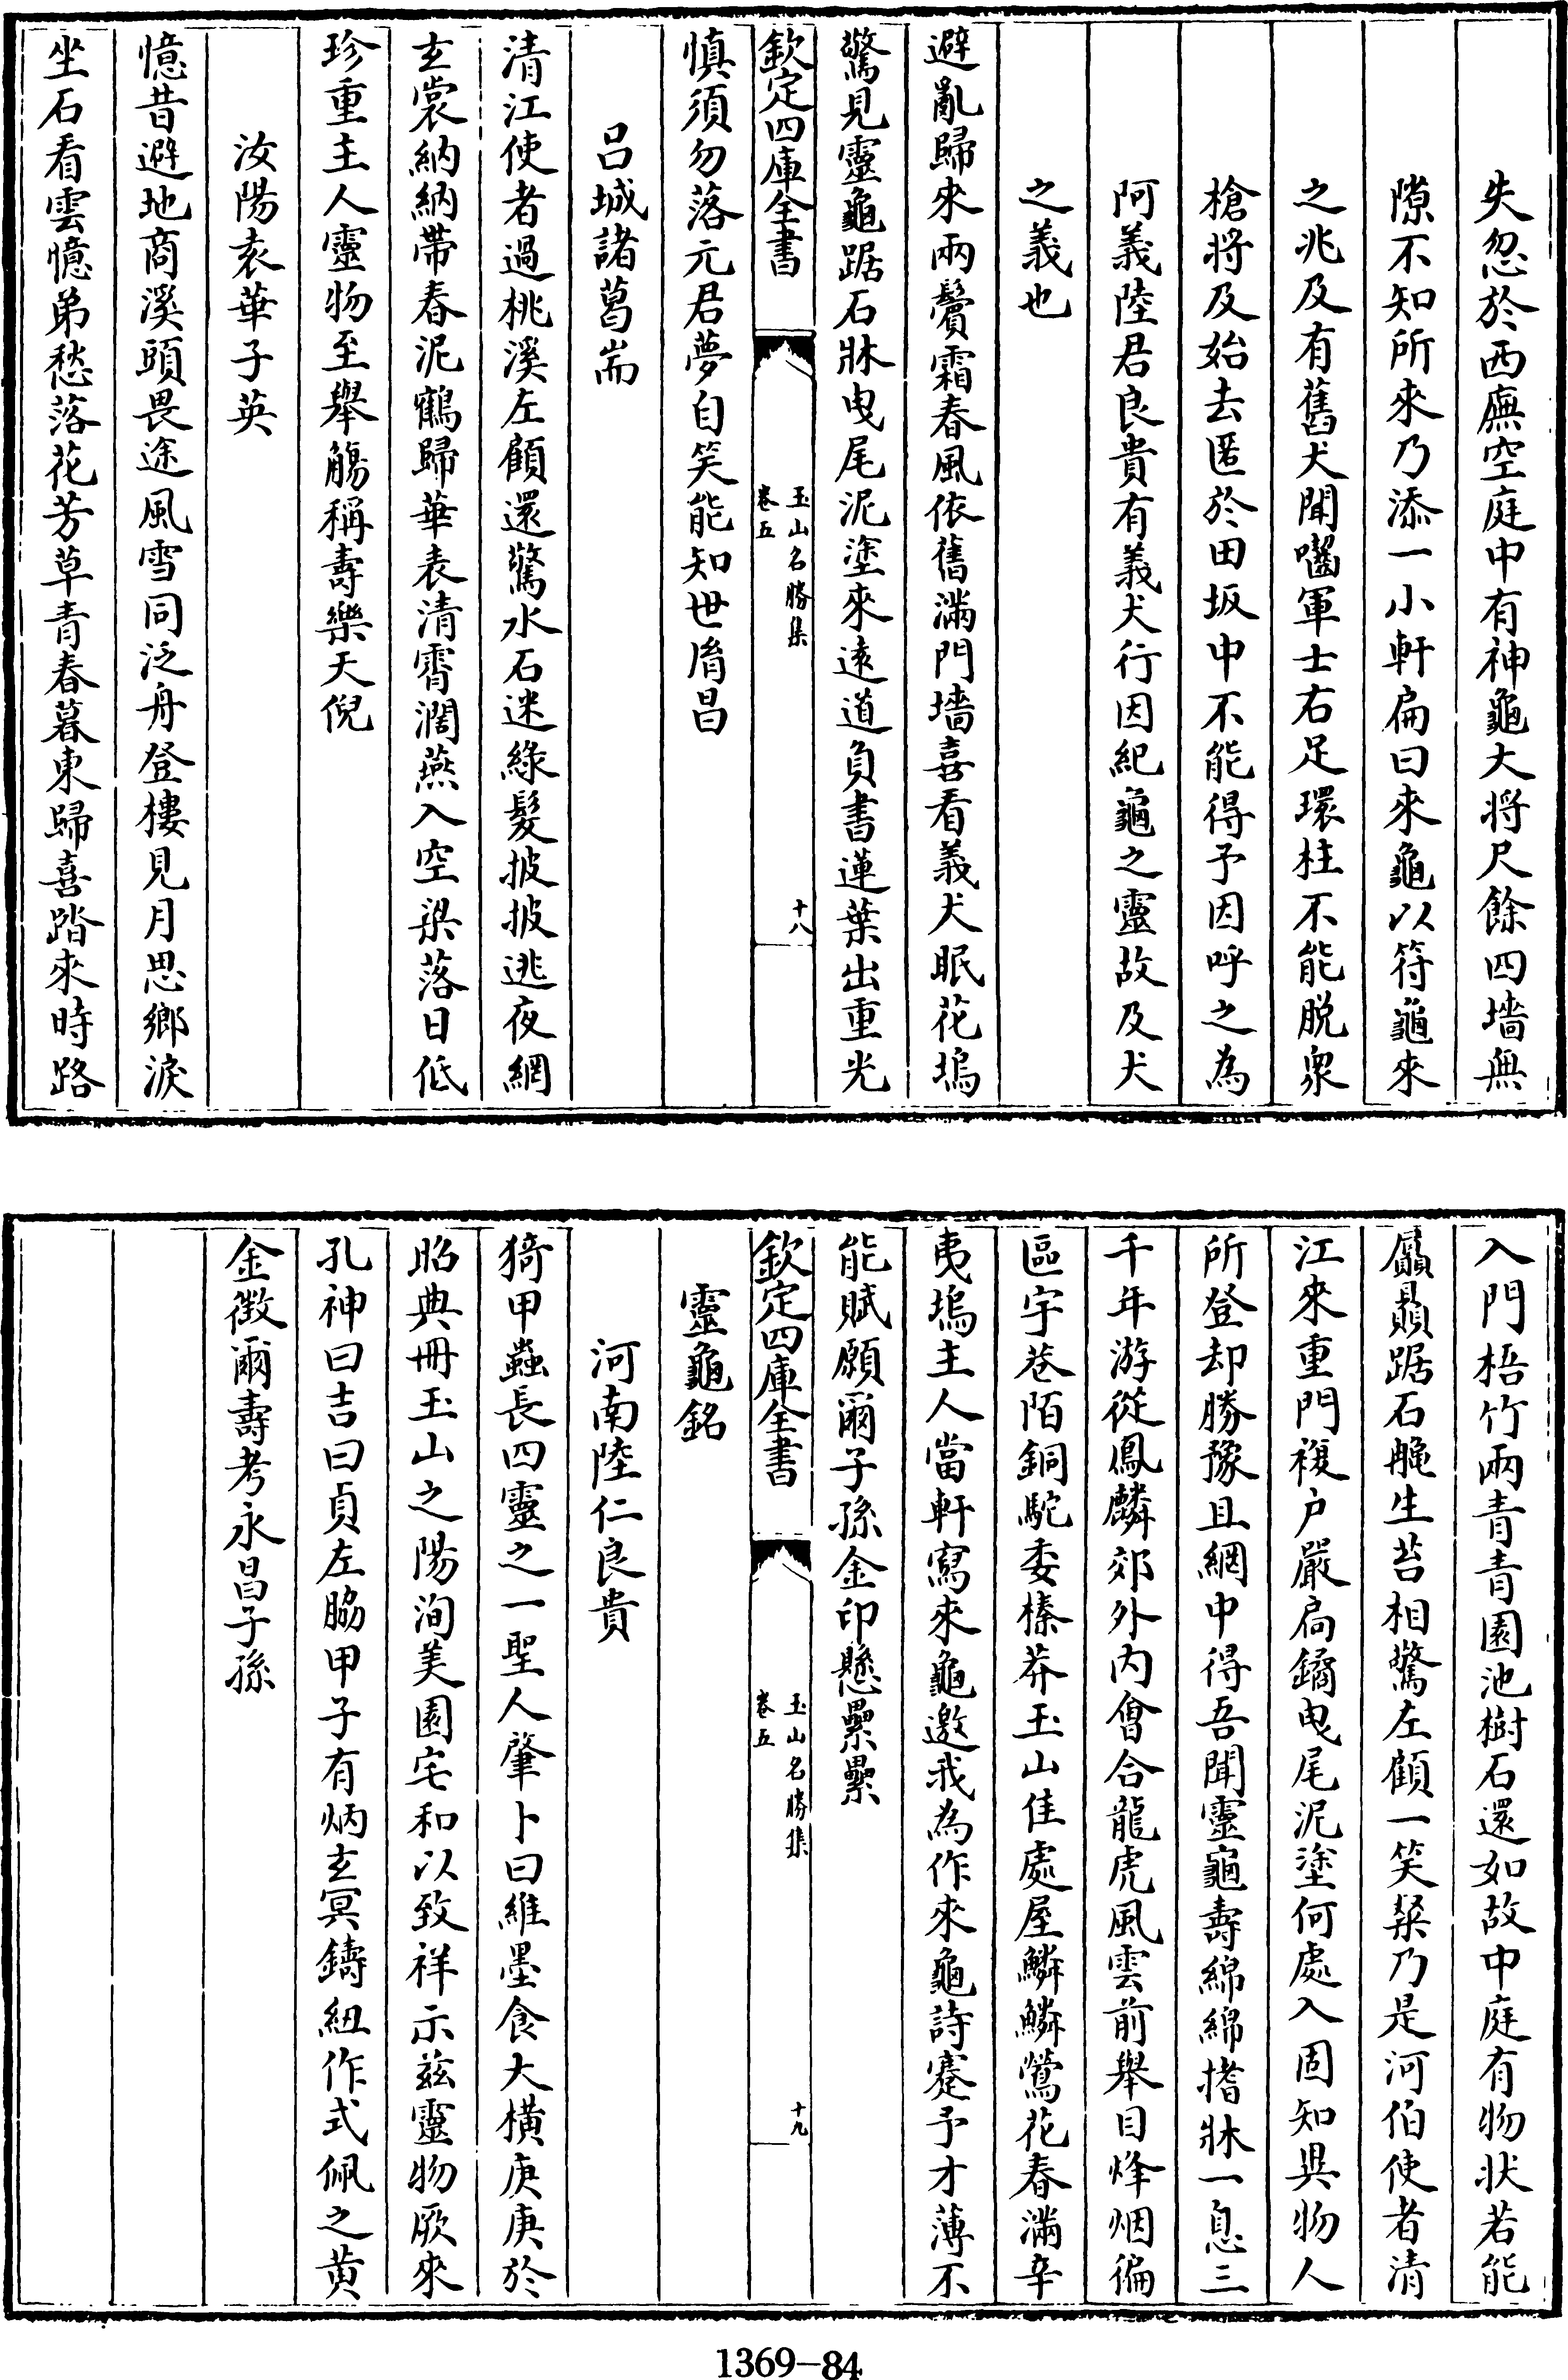 失忽於西廡空庭中有神龜大將尺餘四墻無
隙不知所來乃添一小軒扁曰來龜以符龜來
之兆及有舊犬聞囓軍士右足環柱不能脱衆
槍將及始去匿於田坂中不能得予因呼之為
阿義陸君良貴有義犬行因紀龜之靈故及犬
之義也
避亂歸來兩鬢霜春風依舊滿門墻喜看義犬眠花塢
驚見靈龜踞石牀曳尾泥塗來逺道負書蓮葉出重光
欽定四庫全書
玉山名勝集
卷五
十八
慎須勿落元君夢自笑能知世脩昌
吕城諸葛耑
清江使者過桃溪左顧還驚水石迷綠髮披披逃夜網
玄裳納納帶春泥鶴歸華表清霄濶燕入空梁落日低
珍重主人靈物至舉觴稱壽樂天倪
汝陽袁華子英
憶昔避地商溪頭畏途風雪同泛舟登樓見月思鄉淚
坐石看雲憶弟愁落花芳草青春暮東歸喜踏來時路
入門梧竹兩青青園池樹石還如故中庭有物状若能
贔屭踞石艴生苔相驚左顧一笑粲乃是河伯使者清
江來重門複户嚴扃鐍曳尾泥塗何處入固知異物人
所登却勝豫且網中得吾聞靈龜壽綿綿搘牀一息三
千年游從鳳麟郊外内㑹合龍虎風雲前舉目烽烟徧
區宇巷陌銅駝委榛莽玉山佳處屋鱗鱗鶯花春滿辛
夷塢主人當軒寫來龜邀我為作來龜詩蹇予才薄不
能賦願爾子孫金印懸纍纍
欽定四庫全書
玉山名勝集
卷五
十九
靈龜銘
河南陸仁良貴
猗甲蟲長四靈之一聖人肇卜曰維墨食大横庚庚於
昭典冊玉山之陽洵美園宅和以致祥示兹靈物厥來
孔神曰吉曰貞左脇甲子有炳玄冥鑄紐作式佩之黄
金徴爾壽考永昌子孫
1369-84